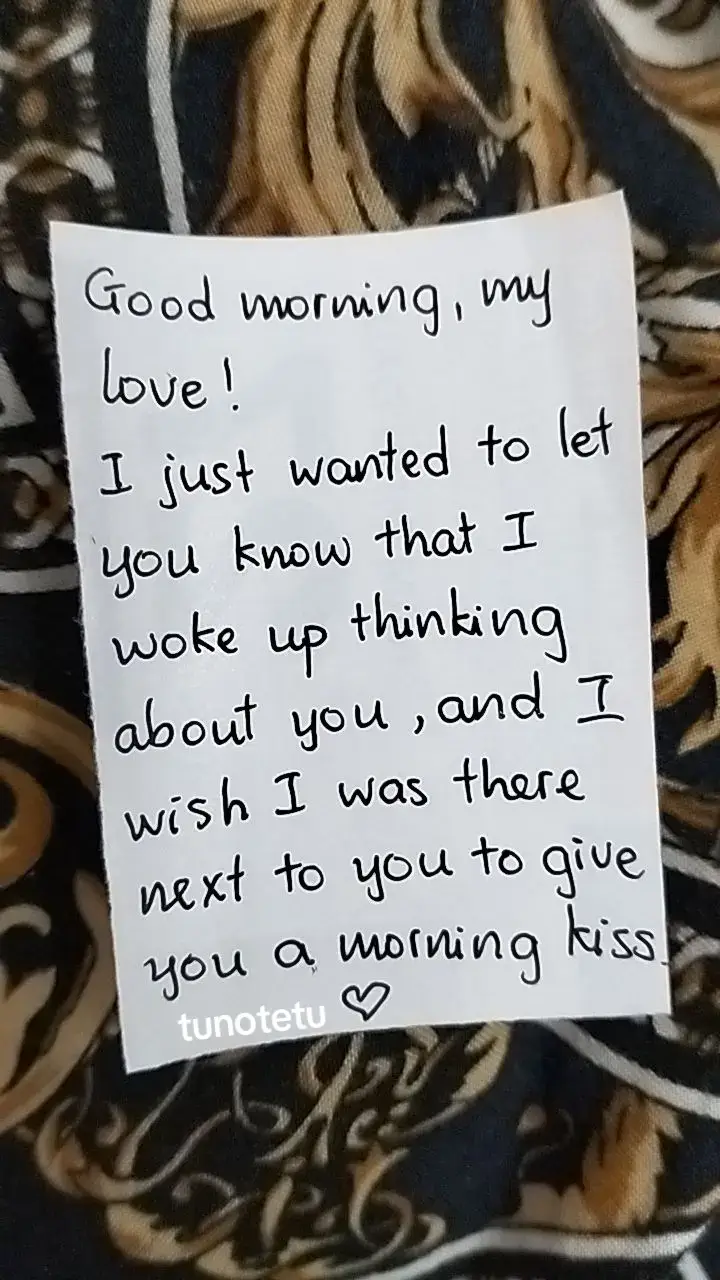 Good morning, my
love!
I just wanted to let
you know that I
woke up thinking
about you, and I
wish I was there
next to you to give
you a morning kiss.
tunotetu ♡